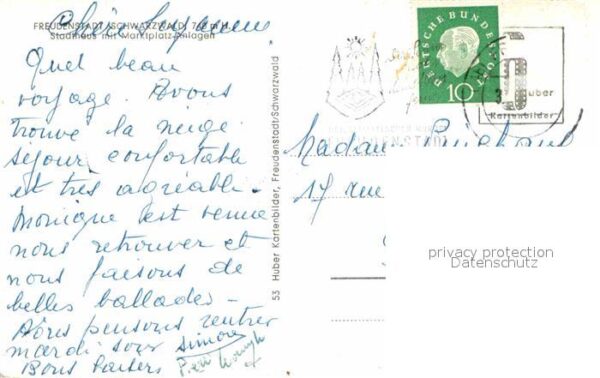 FREUDENSTADT /SCHWARZWALD, 740 m H.
Stadthaus mit Marktplatz-Anlagen
Quel beau
voyage. Avons
trouve la neige
séjour confortable
et très agréable -
Monique est venue
nous retrouver et
nous faisons de
belles ballades -
Nous pensons rentrer
mardi soir simone
Bons baisers
53 Huber Kartenbilder, Freudenstadt/Schwarzwald
DEUTSCHE BUNDESPOST
10
Huber
Kartenbilder
Madame
17 rue
privacy protection
Datenschutz